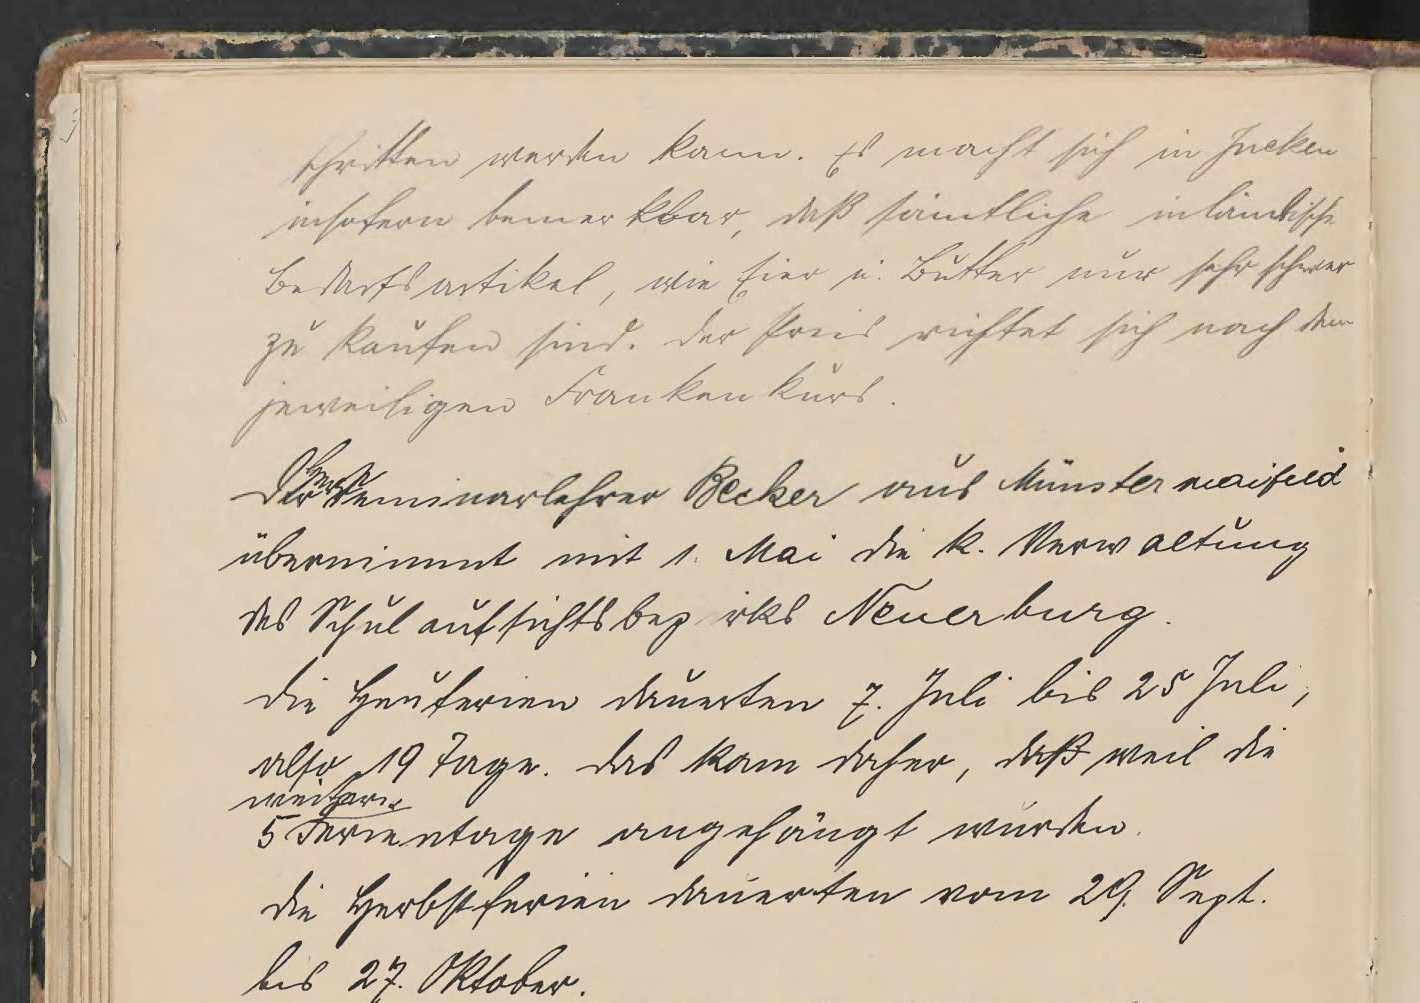 schritten werden kann. Es macht sich in Jucken
insofern bemerkbar, daß sämtliche inländische
Bedarfsartikel, wie Eier u. Butter nur sehr schwer
zu kaufen sind. Der Preis richtet sich nach dem
jeweiligen Frankenkurs.
Ober
Der Seminarlehrer Becker aus Münstermaifeld
übernimmt mit 1. Mai die k. Verwaltung
des Schulaufsichtsbezirks Neuerburg.
Die Heuferien dauerten 7. Juli bis 25 Juli,
also 19 Tage. Das kam daher, daß weil die
weitern
5 Ferientage angehängt wurden.
Die Herbstferien dauerten vom 29. Sept.
bis 27. Oktober.